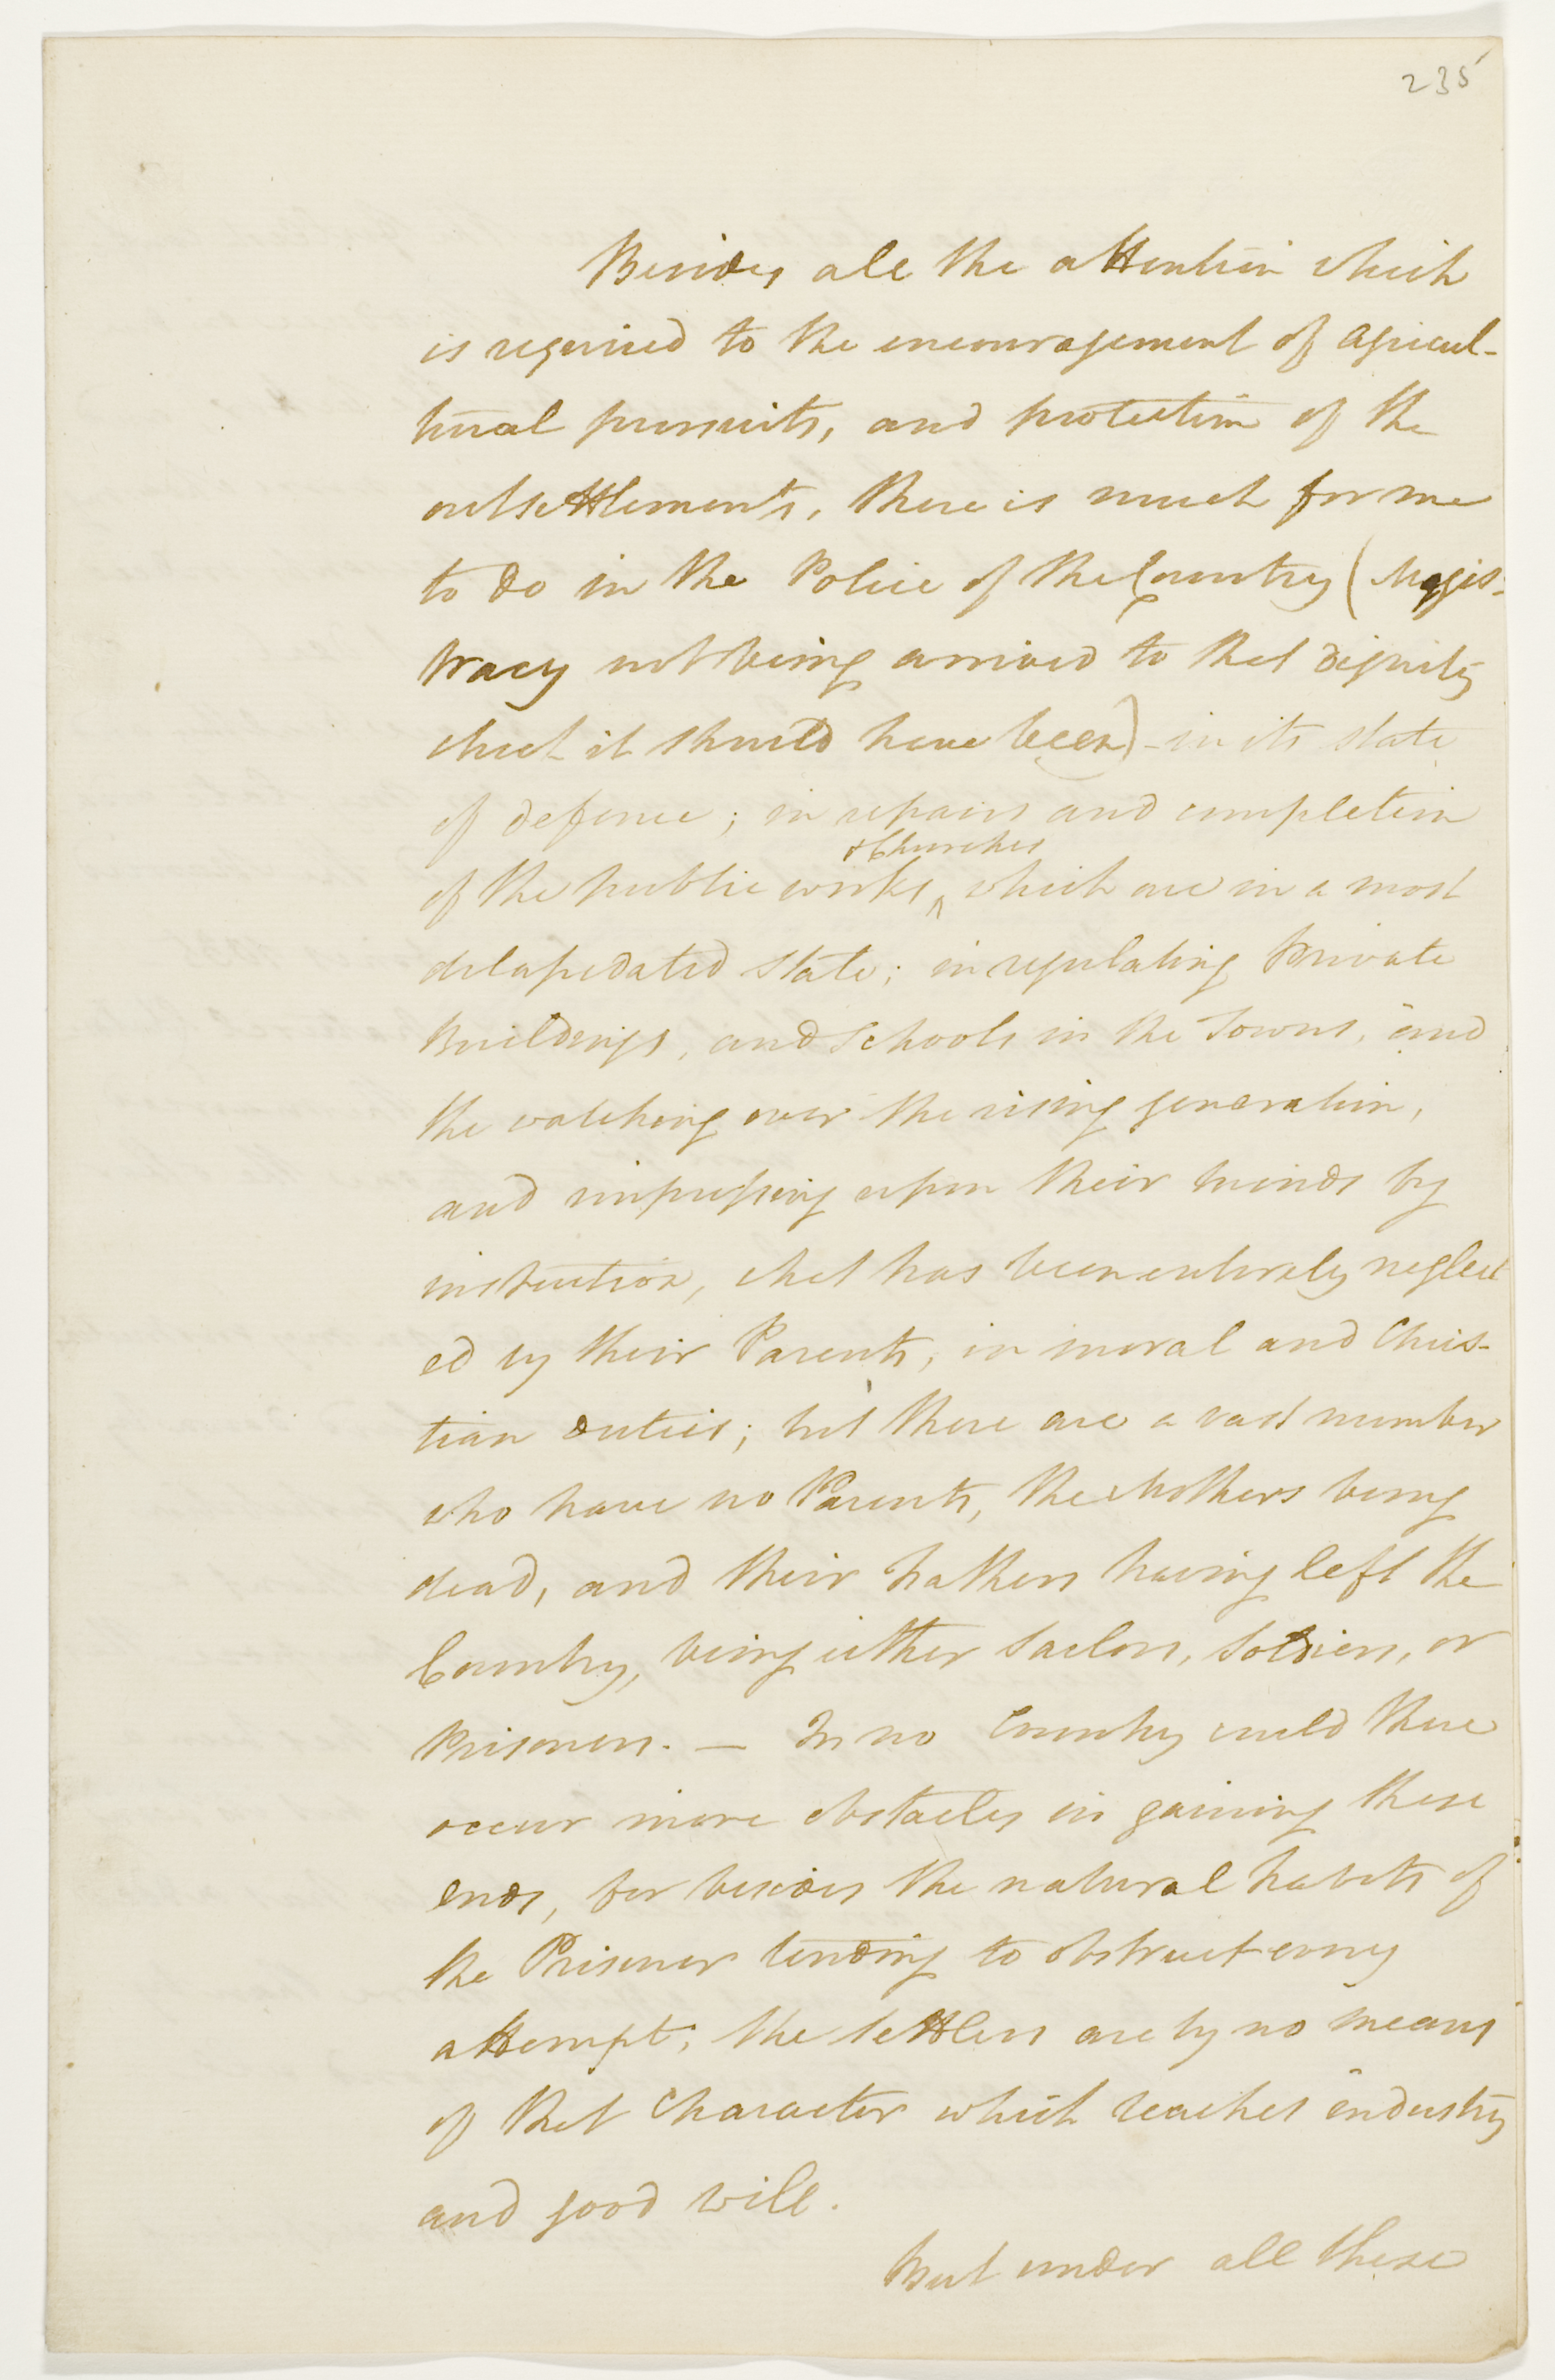 235
Besides all the attention which
is required to the encouragement of agricul-
tural pursuits, and protection of the
outsettlements, there is much for me
to do in the Police of the Country (Magis-
tracy not being arrived to that dignity
which it should have been) - in its state
of defence; in repairs and completion
& Churches
of the public works, ^ which are in a most
delapedated state; in regulating Private
Buildings, and Schools in the Towns, and
the watching over the rising generation,
and impressing upon their minds by
instruction, what has been entirely neglect
ed by their Parents, in moral and Chris-
tian duties; but there are a vast number
who have no Parents, the Mothers being
dead, and their Fathers having left the
Country, being either Sailors, Soldiers, or
Prisoners. — In no Country could there
occur more obstacles in gaining these
ends, for besides the natural habits of
the Prisoner tending to obstruct every
attempt, the Settlers are by no means
of that Character which teaches industry
and good will.
But under all these